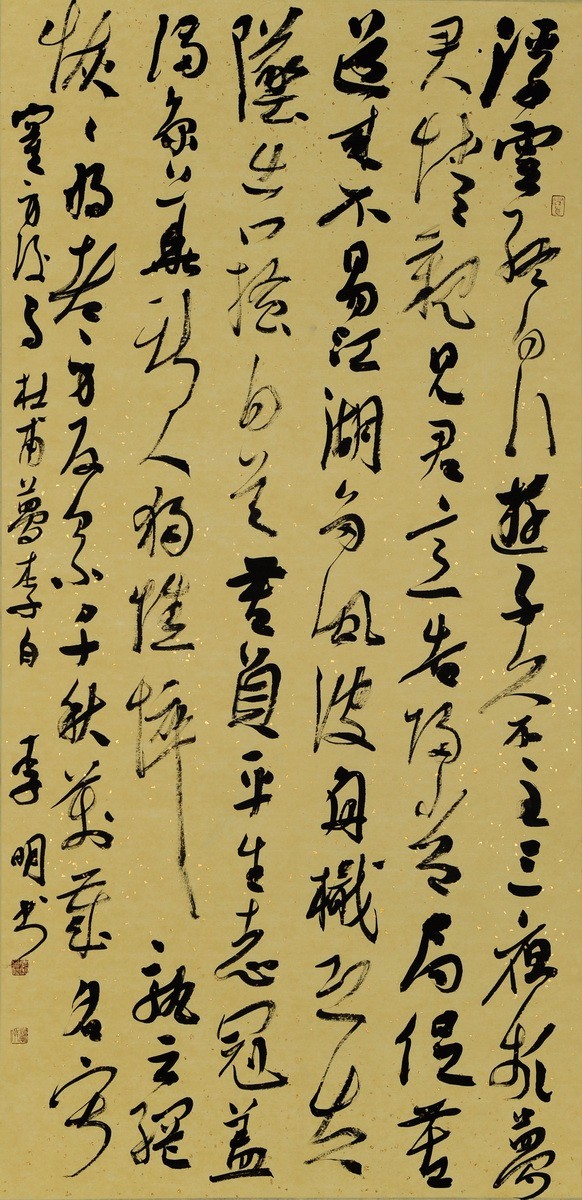 浮雲終日行遊子久不至三夜頻夢
君情親見君意告歸常局促苦
道來不易江湖多風波舟檝恐失
墜出門搔白首若負平生志冠蓋
滿京華斯人獨憔悴孰云網
恢恢將老身反累千秋萬歲名寂
寞身後事 杜甫夢李白 李明書